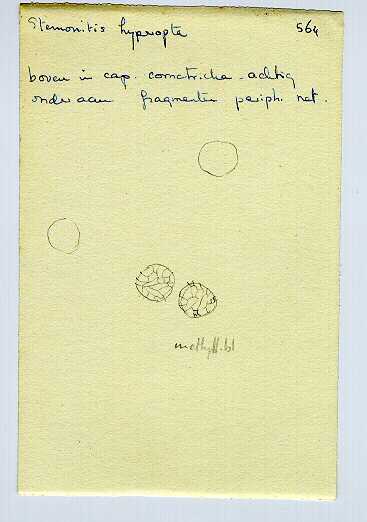 Stemonitis hyperopta 564
boven in cap. comatricha-achtig
onder aan fragmenten periph. net.
methyl.bl